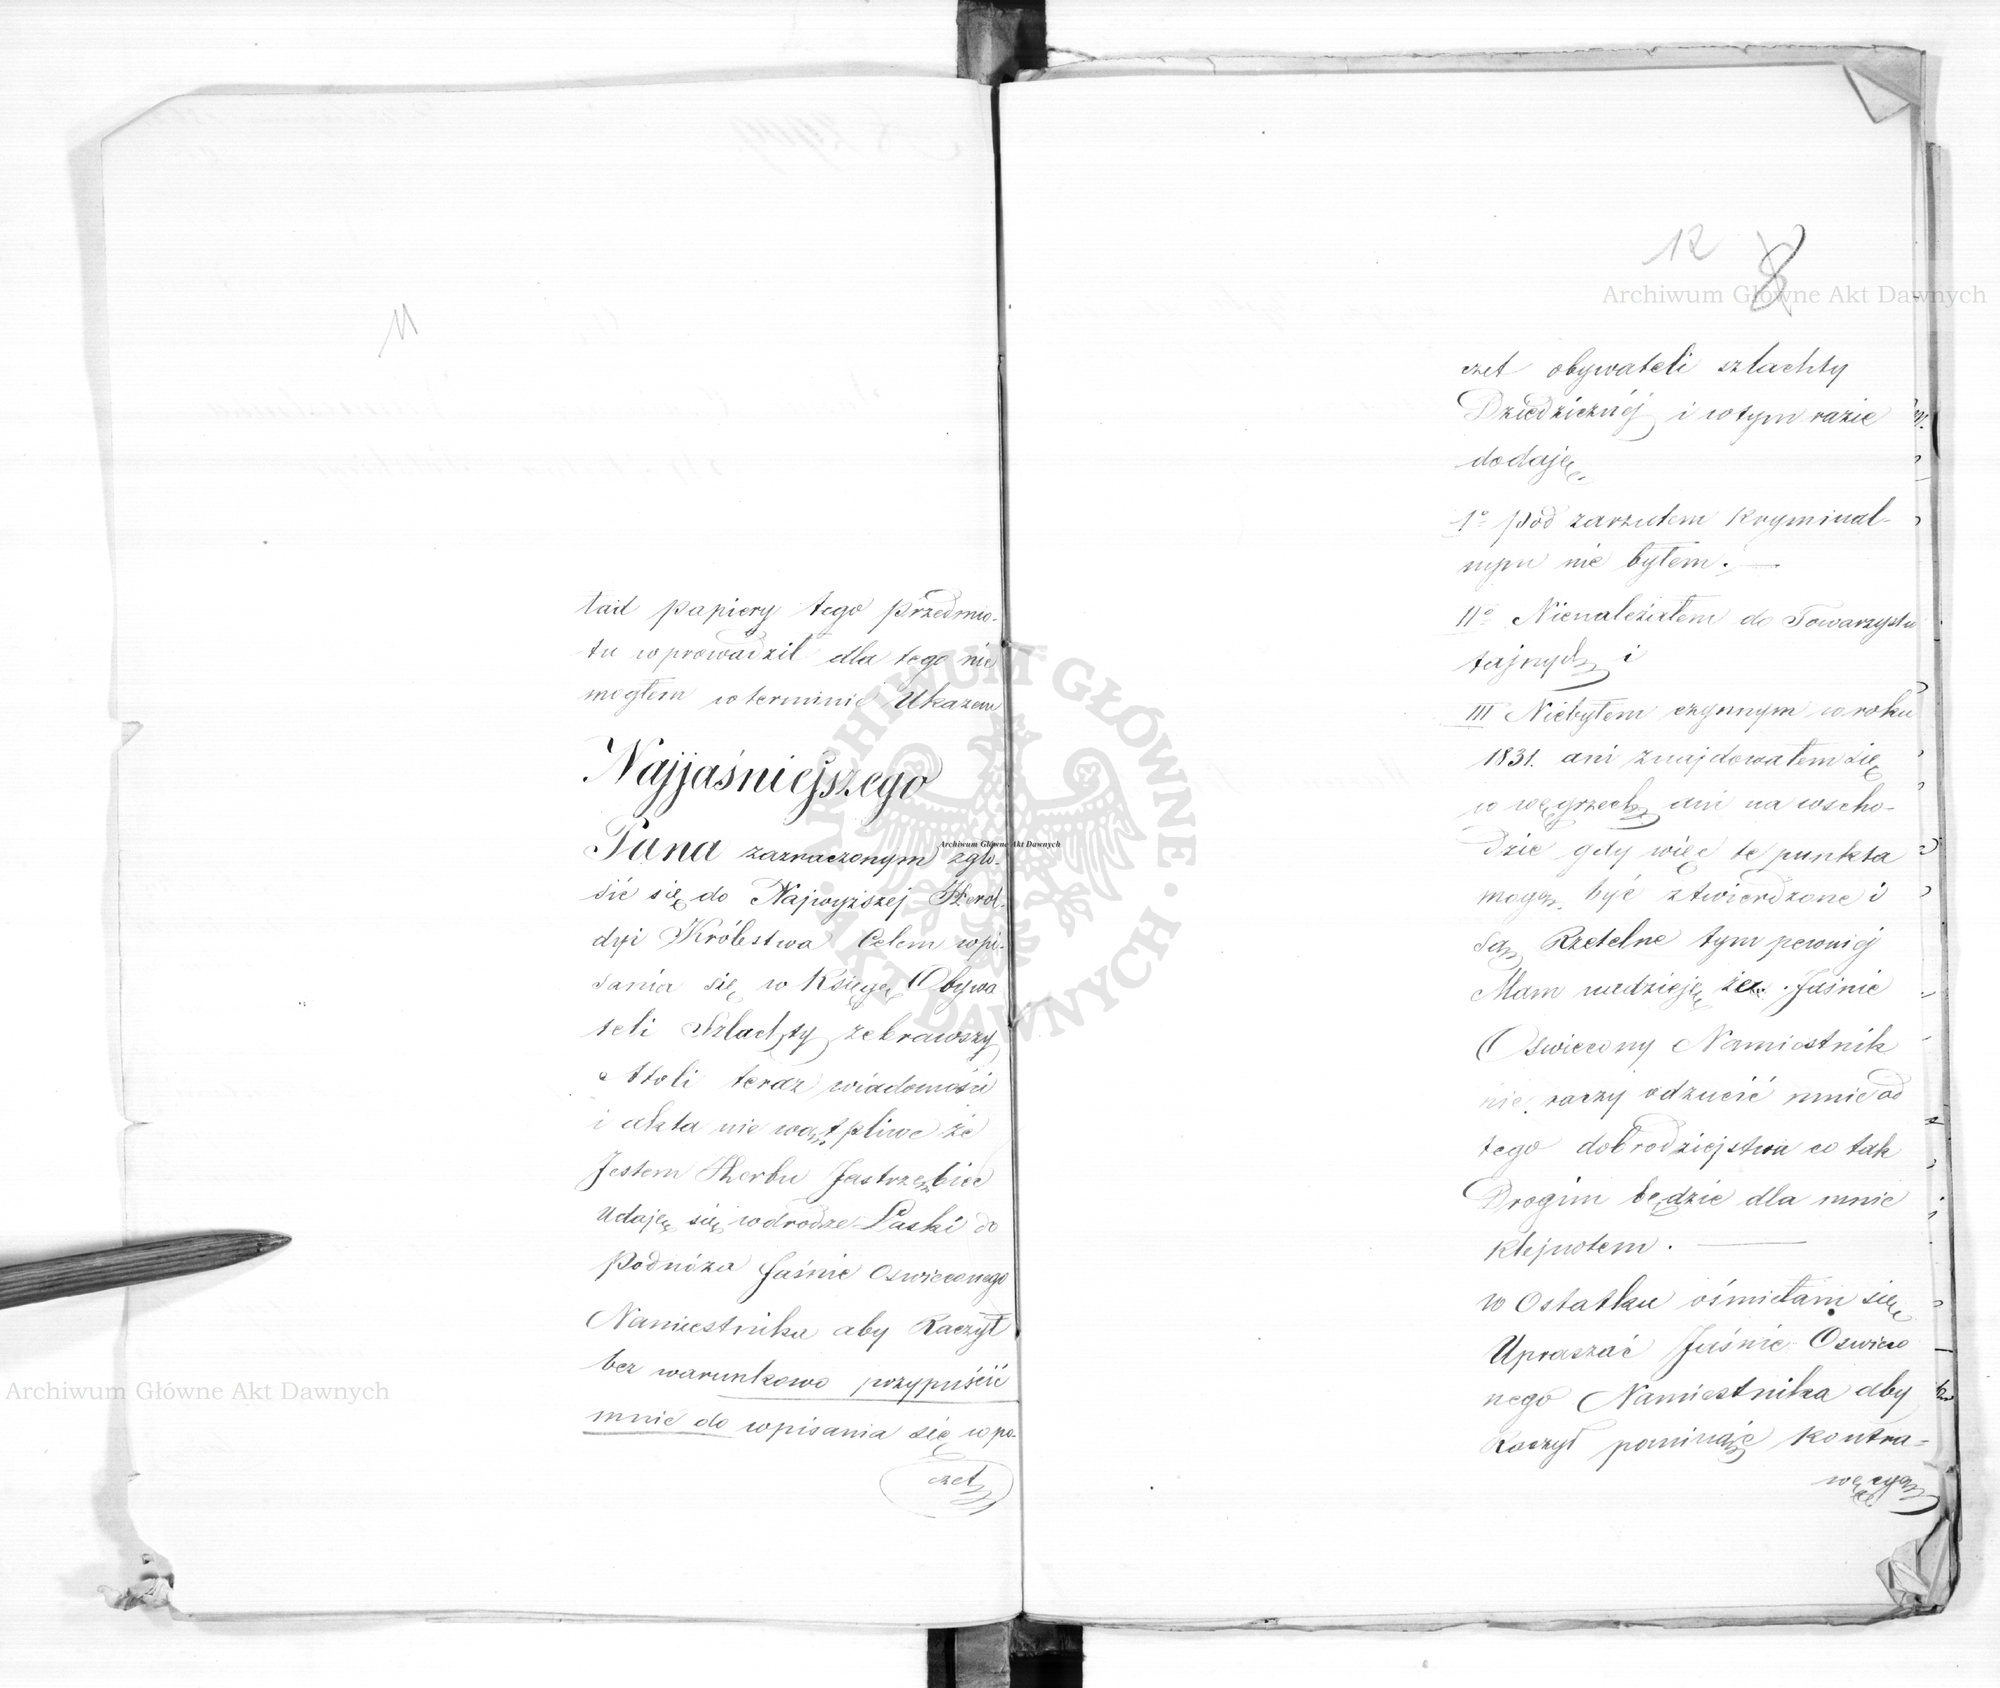 11
ład papiery tego przedmio-
tu wprowadził dla tego nie
mogłem w terminie Ukazem
Najjaśniejszego
Pana zaznaczonym zgło-
sić się do Najwyższej Herol-
dyi Królestwa Celem wpi-
sania się w Księgę Obywa
teli Szlachty, zebrawszy
teraz wiadomości
i akta nie wątpliwe że
Jestem Herbu Jastrzębiec
Udaję się w drodze Łaski do
podnóża Jaśnie Oswieconego
Namiestnika aby Raczył
bez warunkowo przypuścić
mnie do wpisania się w po-
czet
12 8
czet obywateli szlachty
Dziedzicznéj i w tym razie
dodaję
1º pod zarzutem Kryminal-
nym nie byłem.
IIº Nienależałem do Towarzystw
tajnych i
III Niebyłem czynnym w roku
1831. ani znajdowałem się
w węgrzech ani na wscho-
dzie gdy więc te punkta
mogą być stwierdzone i
są Rzetelne tym pewniej
Mam nadzieję że Jaśnie
Oswiecony Namiestnik
nie raczy odrzucić mnie od
tego dobrodziejstwa co tak
Drogim będzie dla mnie
Klejnotem.
w Ostatku ośmielam się
Upraszać Jaśnie Oswieco
nego Namiestnika aby
Raczył pominąć Kontra-
Archiwum Główne Akt Dawnych
Archiwum Główne Akt Dawnych
Archiwum Główne Akt Dawnych
ARCHIWUM GŁÓWNE · AKT DAWNYCH ·